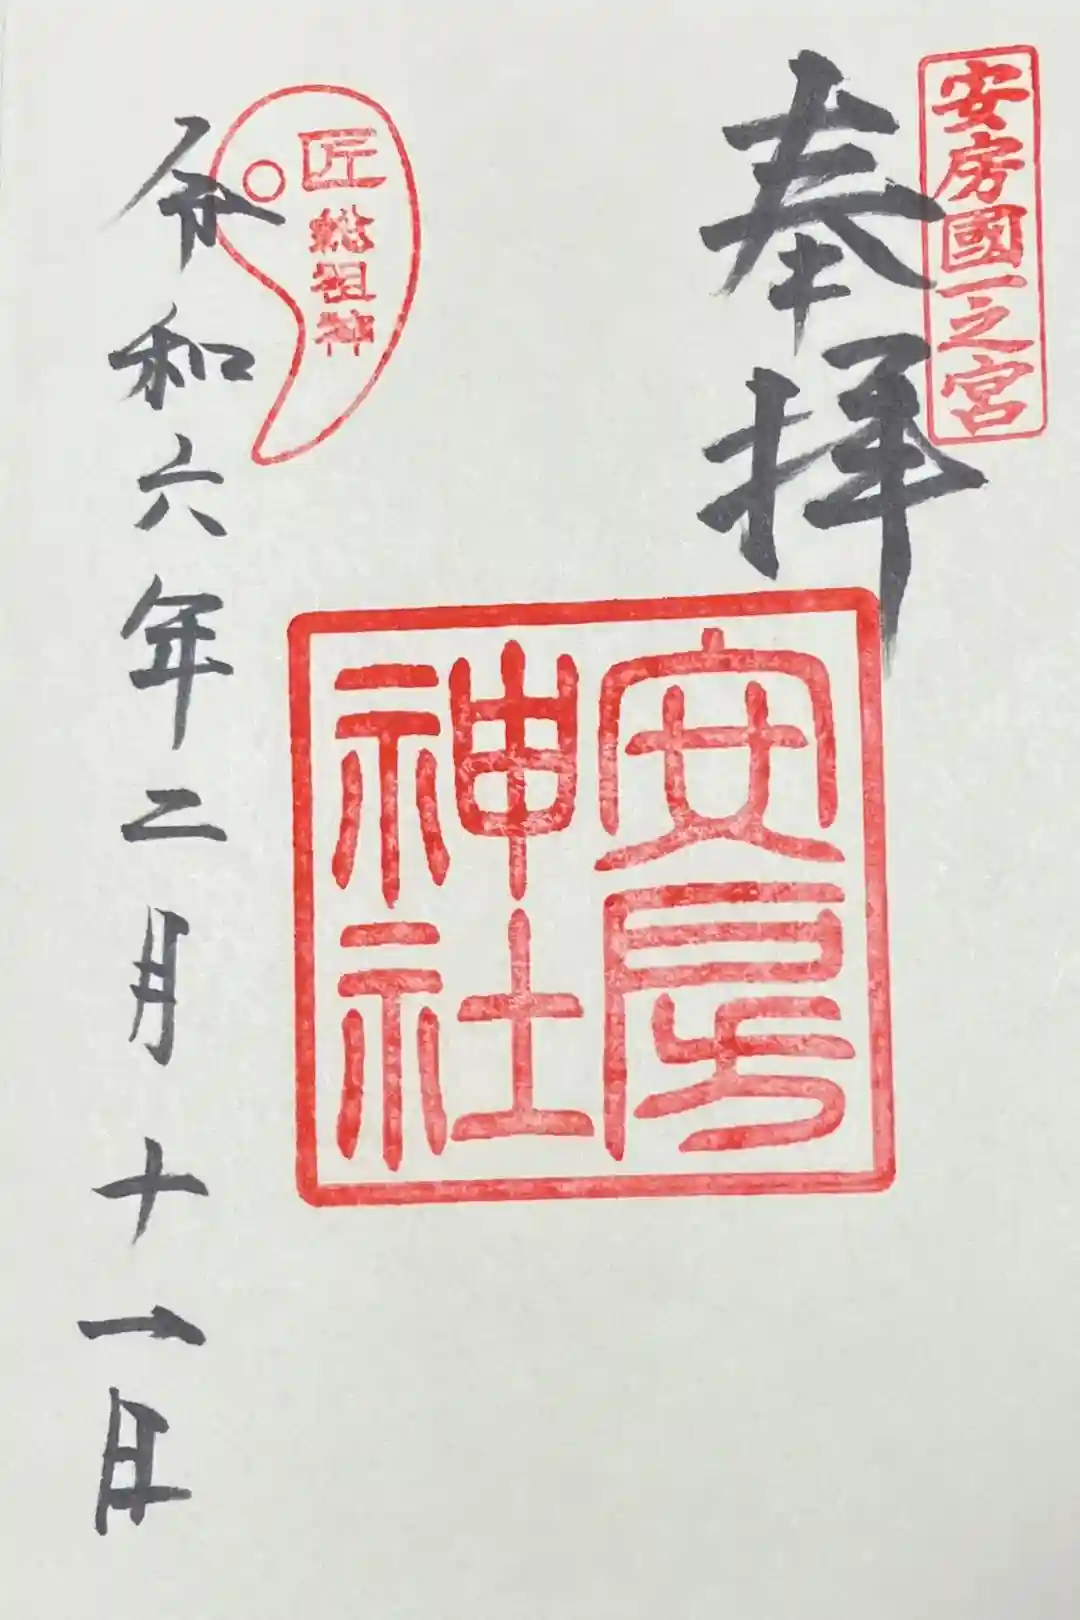 安房國一之宮
奉拝
安房
神社
匠
総祖神
令和六年二月十一日